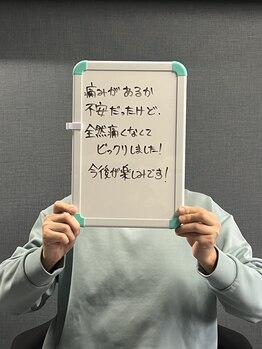 痛みがあるか
不安だったけど、
全然痛くなくて
ビックリしました!
今後が楽しみです!